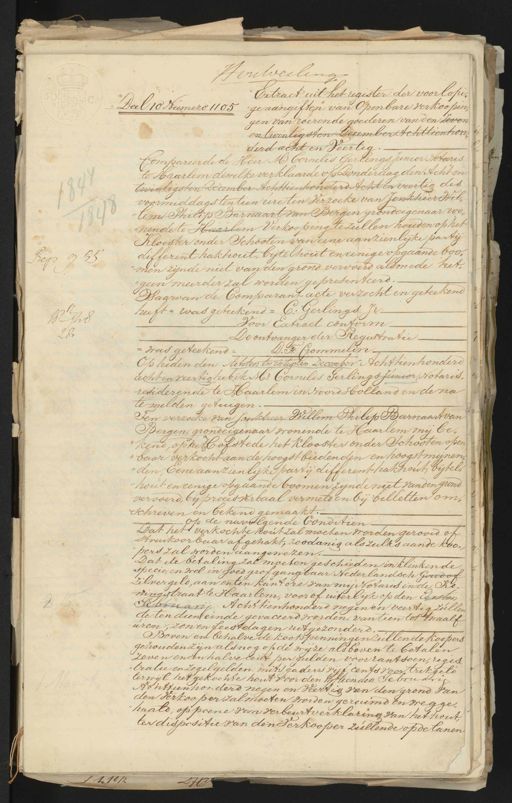 Houtveiling
Deel 10 Numero 1105
Extract uit het register der voorlopi-
ge aangiften van Openbare verkoopin-
gen van roerende goederen van den Zeven
en twintigsten December Achttienhon-
derd acht en Veertig.
Compareerde de Heer Mr Cornelis Gerlings junior Notaris
te Haarlem dewelke verklaarde op Donderdag den Acht en
Twintigsten December Achttienhonderd Acht en veertig des
voormiddags ten tien uren ten verzoeke van Jonkheer Wil-
lem Philip Barnaart van Bergen grondeigenaar wo-
nende te Haarlem Verkooping te zullen houden op het
Klooster onder Schooten van eene aanzienlijke partij
different hakhout, bijtelhout en eenige opgaande boo-
men zijnde niet van den grond vervoerd alsmede het
geen meerder zal worden gepresenteerd.
Waarvan de Comparant acte verzocht en geteekend
heeft = was geteekend = C. Gerlings Jr.
Voor Extract conform
De ontvanger der Registratie
= was geteekend = Crommelin
1847
1848
Rep: 9 55
Op heden den Achtentwintigsten December Achttienhonderd
achtenveertig heb ik Mr Cornelis Gerlings junior notaris,
residerende te Haarlem in Noord Holland en de na
te melden getuigen
Ten verzoeke van Jonkheer Willem Philip Barnaart van
Bergen, grondeigenaar wonende te Haarlem mij be-
kend, op de Hofstede het Klooster onder Schooten open-
baar verkocht aan de hoogst biedenden en hoogst mijnen-
den Eene aanzienlijke partij different hakhout, bijtel
hout en eenige opgaande boomen zijnde niet van den grond
vervoerd bij proces verbaal vermeten bij belletten om-
schreven en bekend gemaakt.
op de navolgende Conditien
Dat het verkochte hout zal moeten worden gerooid of
struikvorbaar afgehakt, zoodanig als zulks aan de koo-
pers zal worden aangewezen.
Dat de betaling zal moeten geschieden in klinkende
specie, en wel in goed gangbaar Nederlandsch Goud of
Zilvergeld, aan en ten kantore van mij Notaris in de Ko-
ningstraat te Haarlem, voor of uiterlijk op den
Februarij Achttienhonderd negen en veertig zullen-
de ten dien einde gevaceerd worden van tien tot twaalf
uren, zon en feestdagen uitgezonderd.
Boven en behalve de kooppenningen zullen de koopers
gehouden zijn alsnog op de wijze als boven te betalen
zeven en een halve cent per gulden voor rantsoen, regis
tratie en zegelgelden mitsgaders vijf cents van trekgeld
terwijl het gekochte hout voor den
Achttienhonderd negen en Veertig van den grond van
den Verkooper zal moeten worden geruimd en wegge-
haald, op poene van verbeurtverklaring van het hout,
ter dispositie van den Verkooper zullende op de lanen